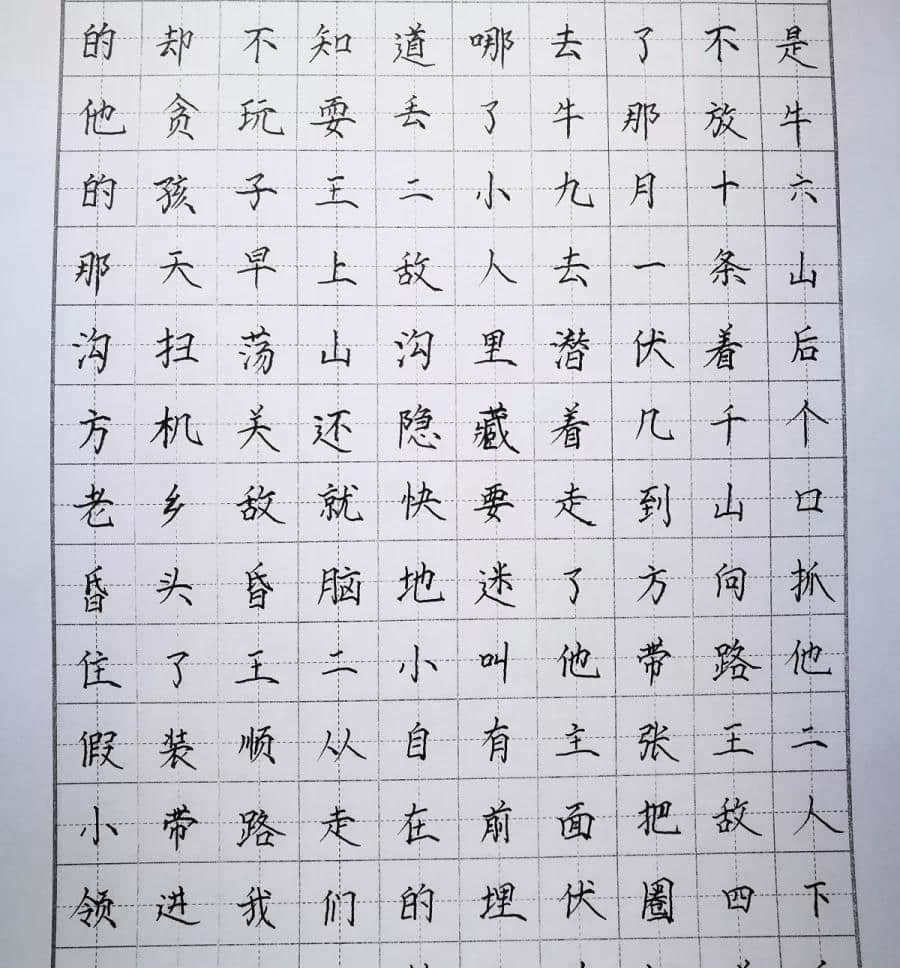 的却不知道哪去了不是
他贪玩耍丢了牛那放牛
的孩子王二小九月十六
那天早上敌人去一条山
沟扫荡山沟里潜伏着后
方机关还隐藏着几千个
老乡敌就快要走到山口
昏头昏脑地迷了方向抓
住了王二小叫他带路他
假装顺从自有主张王二
小带路走在前面把敌人
领进我们的埋伏圈四下